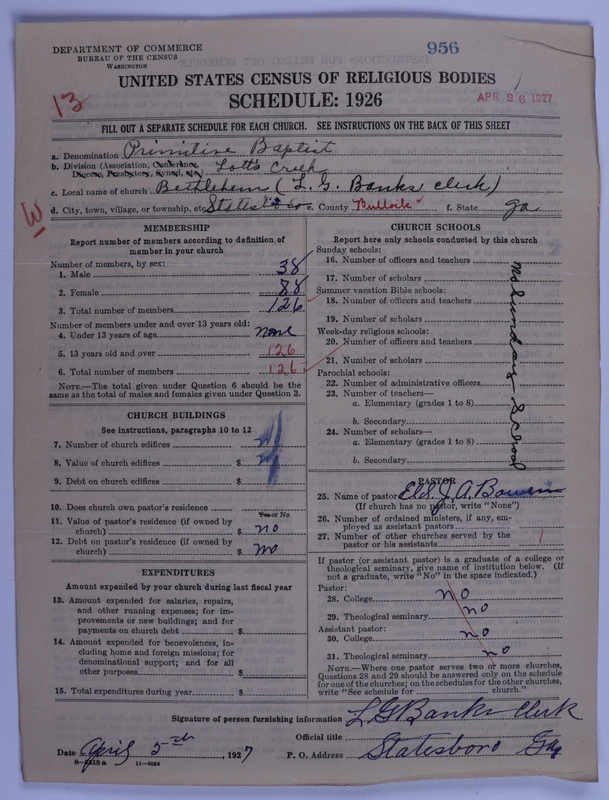 DEPARTMENT OF COMMERCE
BUREAU OF THE CENSUS
WASHINGTON
956
UNITED STATES CENSUS OF RELIGIOUS BODIES
SCHEDULE: 1926
APR 26 1927
13
FILL OUT A SEPARATE SCHEDULE FOR EACH CHURCH. SEE INSTRUCTIONS ON THE BACK OF THIS SHEET
a. Denomination Primitive Baptist
b. Division (Association, Conference, Lotts Creek
Diocese, Presbytery, Synod, etc.)
c. Local name of church Bethlehem (L. G. Banks clerk)
d. City, town, village, or township, etc. e. County Bulloch f. State Ga
W
MEMBERSHIP
Report number of members according to definition of
member in your church
Number of members, by sex:
1. Male 38
2. Female 88
3. Total number of members 126
Number of members under and over 13 years old:
4. Under 13 years of age none
5. 13 years old and over 126
6. Total number of members 126
NOTE.—The total given under Question 6 should be the
same as the total of males and females given under Question 3.
CHURCH BUILDINGS
See instructions, paragraphs 10 to 12
7. Number of church edifices
8. Value of church edifices $
9. Debt on church edifices $
10. Does church own pastor's residence
Yes or No
11. Value of pastor's residence (if owned by
church) $ no
12. Debt on pastor's residence (if owned by
church) $ no
EXPENDITURES
Amount expended by your church during last fiscal year
13. Amount expended for salaries, repairs,
and other running expenses; for im-
provements or new buildings; and for
payments on church debt $
14. Amount expended for benevolences, in-
cluding home and foreign missions; for
denominational support; and for all
other purposes $
15. Total expenditures during year $
CHURCH SCHOOLS
Report here only schools conducted by this church
Sunday schools:
16. Number of officers and teachers
17. Number of scholars
Summer vacation Bible schools:
18. Number of officers and teachers
19. Number of scholars
Week-day religious schools:
20. Number of officers and teachers
21. Number of scholars
Parochial schools:
22. Number of administrative officers
23. Number of teachers—
a. Elementary (grades 1 to 8)
b. Secondary
24. Number of scholars—
a. Elementary (grades 1 to 8)
b. Secondary
No Sunday School
PASTOR
25. Name of pastor Eld. J. A. Bowen
(If church has no pastor, write "None")
26. Number of ordained ministers, if any, em-
ployed as assistant pastors
27. Number of other churches served by the
pastor or his assistants
If pastor (or assistant pastor) is a graduate of a college or
theological seminary, give name of institution below. (If
not a graduate, write "No" in the space indicated.)
Pastor:
28. College no
29. Theological seminary no
Assistant pastor:
30. College no
31. Theological seminary no
NOTE.—Where one pastor serves two or more churches,
Questions 28 and 29 should be answered only on the schedule
for one of the churches; on the schedules for the other churches,
write "See schedule for church."
Signature of person furnishing information L G Banks Clerk
Official title
Date April 5th, 1927 P. O. Address Statesboro Ga
11—9564